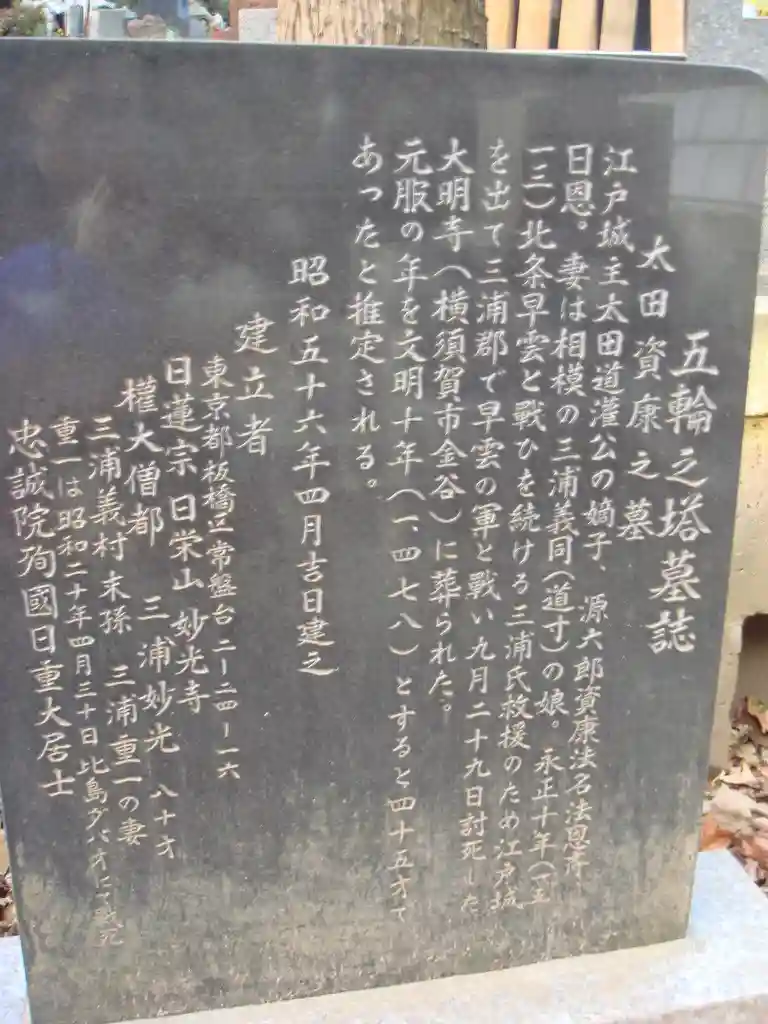 五輪之塔墓誌
太田資康之墓
江戸城主太田道灌公の嫡子、源六郎資康法名法恩斉
日恩。妻は相模の三浦義同(道寸)の娘。永正十年(一五
一三)北条早雲と戰ひを続ける三浦氏救援のため江戸城
を出て三浦郡で早雲の軍と戰い九月二十九日討死した
大明寺(横須賀市金谷)に葬られた。
元服の年を文明十年(一、四七八)とすると四十五才で
あったと推定される。
昭和五十六年四月吉日建之
建立者
東京都板橋区常盤台二ー二四ー一六
日蓮宗 日栄山 妙光寺
権大僧都 三浦妙光 八十才
三浦義村末孫 三浦重一の妻
重一は昭和二十年四月三十日比島ダバオにて戦死
忠誠院殉國日重大居士